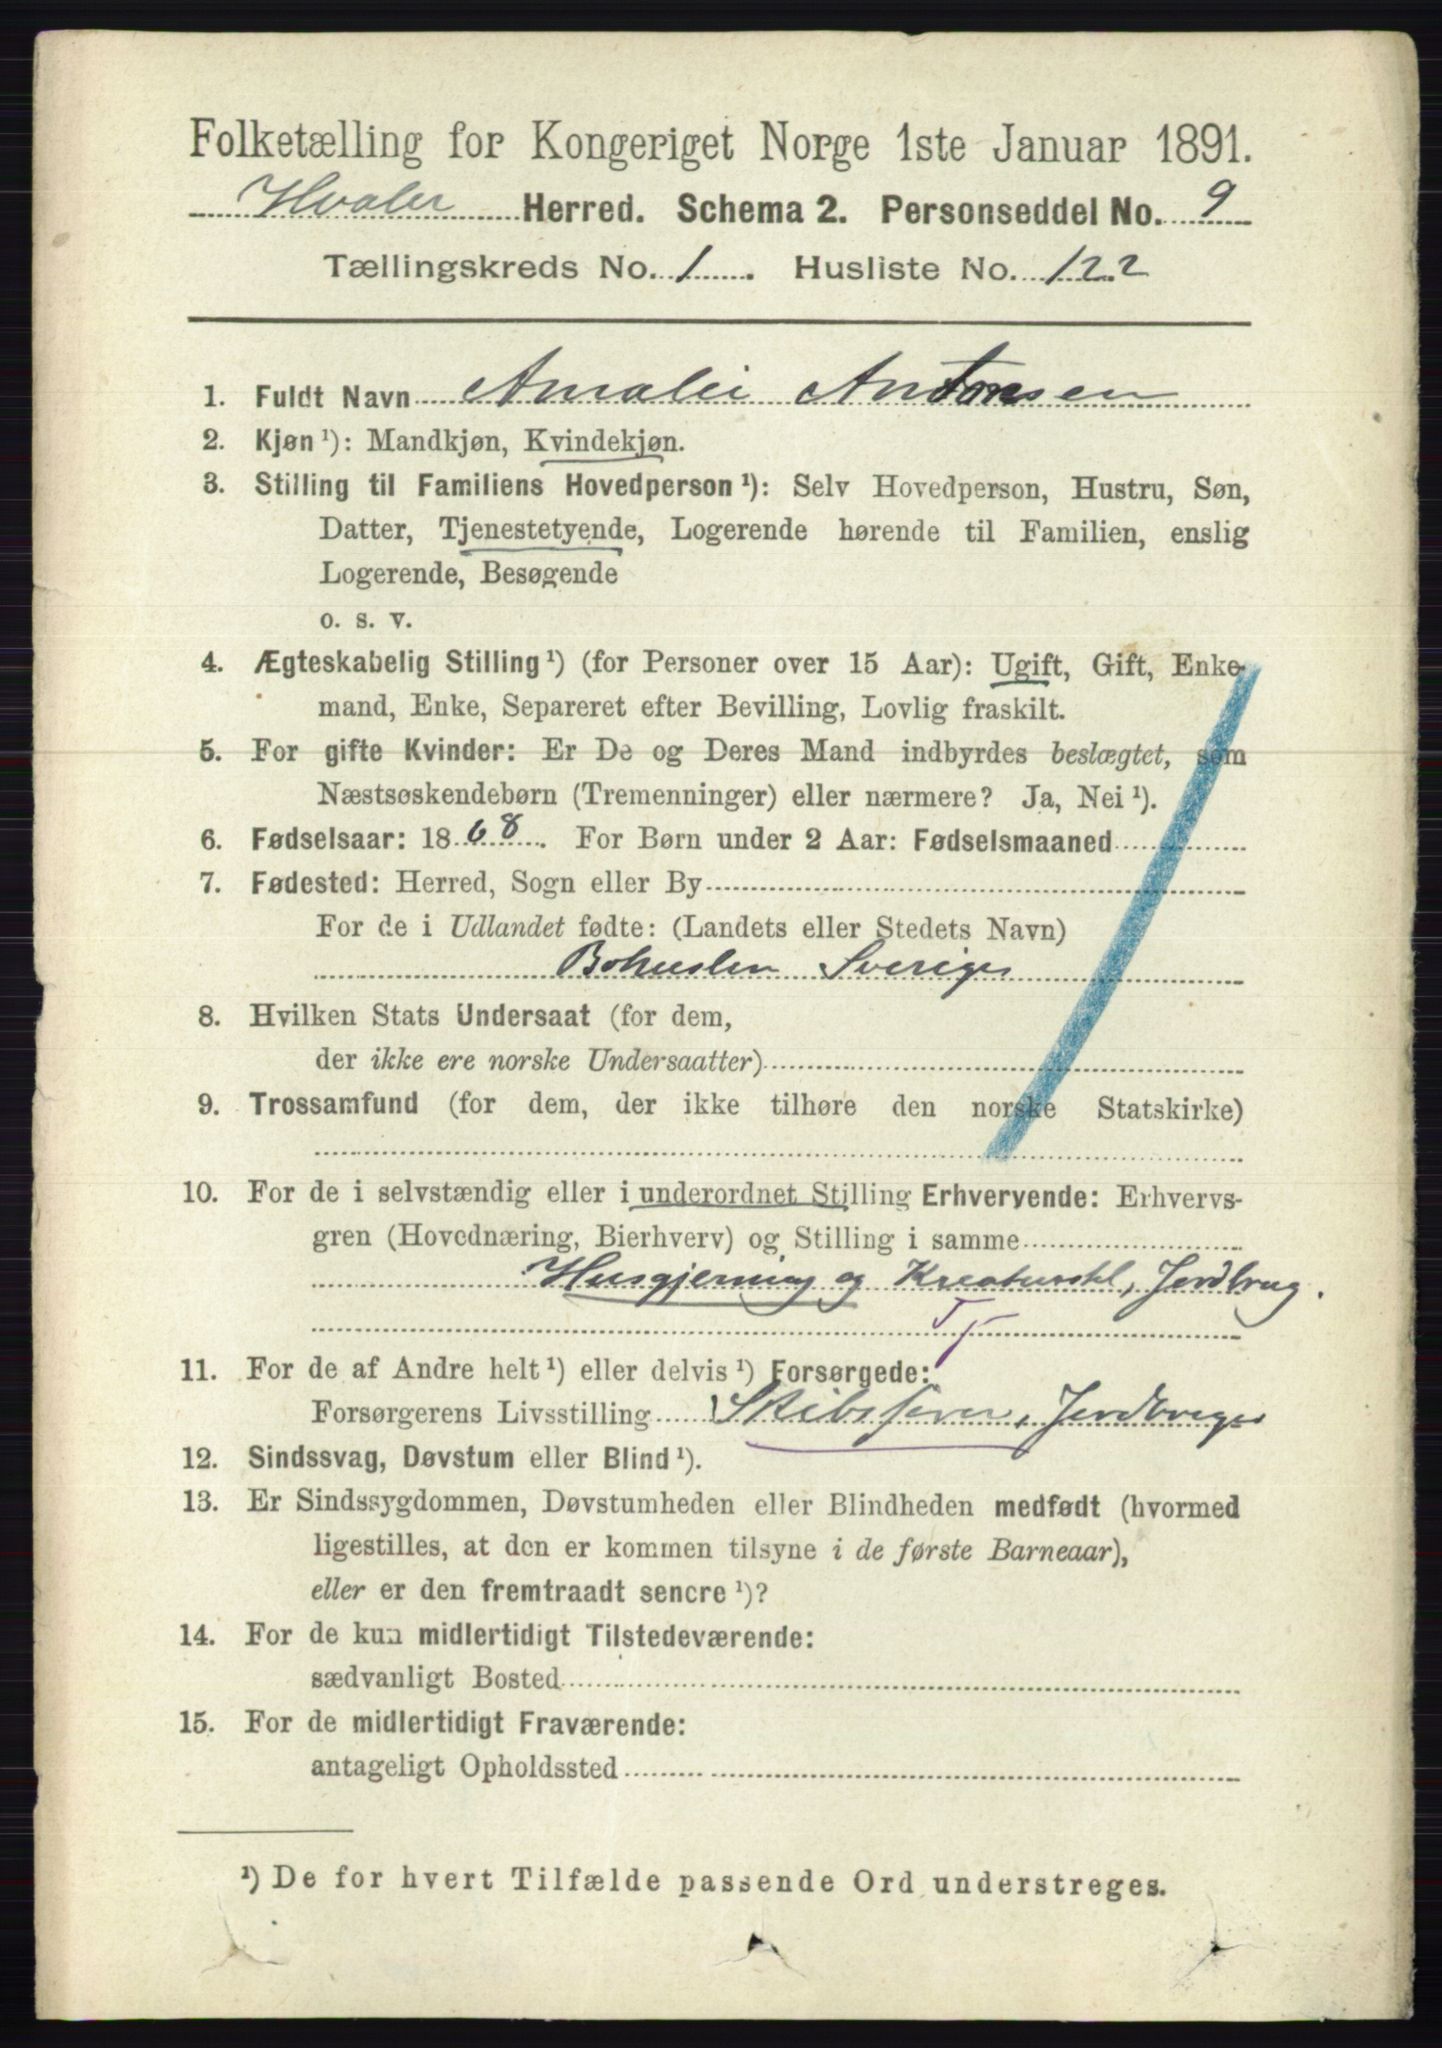 Folketælling for Kongeriget Norge 1ste Januar 1891.
Hvaler Herred. Schema 2. Personseddel No. 9
Tællingskreds No. 1. Husliste No. 122
1. Fuldt Navn Amalie Antonsen
2. Kjøn ¹): Mandkjøn, Kvindekjøn.
3. Stilling til Familiens Hovedperson ¹): Selv Hovedperson, Hustru, Søn,
Datter, Tjenestetyende, Logerende hørende til Familien, enslig
Logerende, Besøgende
o. s. v.
4. Ægteskabelig Stilling ¹) (for Personer over 15 Aar): Ugift, Gift, Enke-
mand, Enke, Separeret efter Bevilling, Lovlig fraskilt.
5. For gifte Kvinder: Er De og Deres Mand indbyrdes beslægtet, som
Næstsøskendebørn (Tremenninger) eller nærmere? Ja, Nei ¹).
6. Fødselsaar: 1868. For Børn under 2 Aar: Fødselsmaaned
7. Fødested: Herred, Sogn eller By
For de i Udlandet fødte: (Landets eller Stedets Navn)
Bohuslen Sverige
8. Hvilken Stats Undersaat (for dem,
der ikke ere norske Undersaatter)
9. Trossamfund (for dem, der ikke tilhøre den norske Statskirke)
10. For de i selvstændig eller i underordnet Stilling Erhvervende: Erhvervs-
gren (Hovednæring, Bierhverv) og Stilling i samme
Husgjerning og Kreaturstel, Jordbrug.
11. For de af Andre helt ¹) eller delvis ¹) Forsørgede:
Forsørgerens Livsstilling Skibsfører, Jordbruger
12. Sindssvag, Døvstum eller Blind ¹).
13. Er Sindssygdommen, Døvstumheden eller Blindheden medfødt (hvormed
ligestilles, at den er kommen tilsyne i de første Barneaar),
eller er den fremtraadt senere ¹)?
14. For de kun midlertidigt Tilstedeværende:
sædvanligt Bosted
15. For de midlertidigt Fraværende:
antageligt Opholdssted
¹) De for hvert Tilfælde passende Ord understreges.